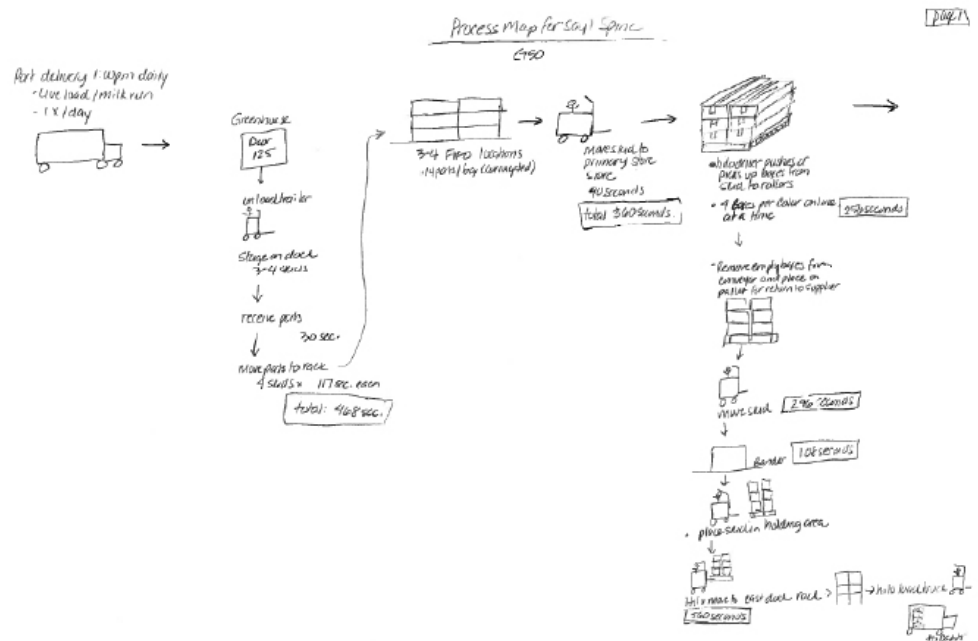 Process Map for Sayl Spine
page 1
Port delivery 1:00pm daily
- Live load/milk run
- 1x/day
Greenhouse
Door
125
unload trailer
Stage on dock
3-4 skids
receive parts
30 sec.
Move parts to rack
4 skids x 117 sec. each
total: 468 sec.
3-4 FIFO locations
move skid to
primary store
store
40 seconds
hilo driver pushes or
picks up boxes from
skid to rollers
• 4 boxes per color on line
at a time
• Remove empty boxes from
conveyor and place on
pallet for return to supplier
move skid
296 seconds
Bander
108 seconds
• place skid in holding area
Hilo move to east dock rack > → hilo loads truck